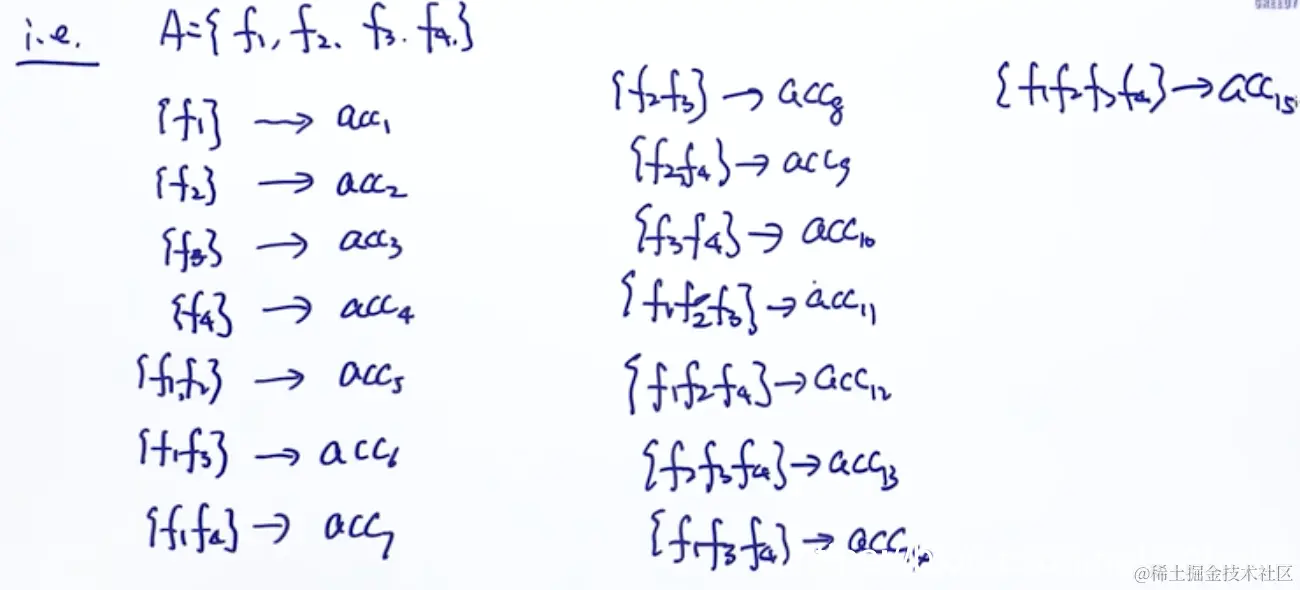 i.e. A={f₁, f₂、f₃. f₄.}
{f₁} → acc₁
{f₂} → acc₂
{f₃} → acc₃
{f₄} → acc₄
{f₁,f₂} → acc₅
{f₁f₃} → acc₆
{f₁f₄} → acc₇
{f₂f₃} → acc₈
{f₂f₄} → acc₉
{f₃f₄} → acc₁₀
{f₁f₂f₃} → acc₁₁
{f₁f₂f₄} → acc₁₂
{f₂f₃f₄} → acc₁₃
{f₁f₃f₄} → acc
{f₁f₂f₃f₄} → acc₁₅
@稀土掘金技术社区